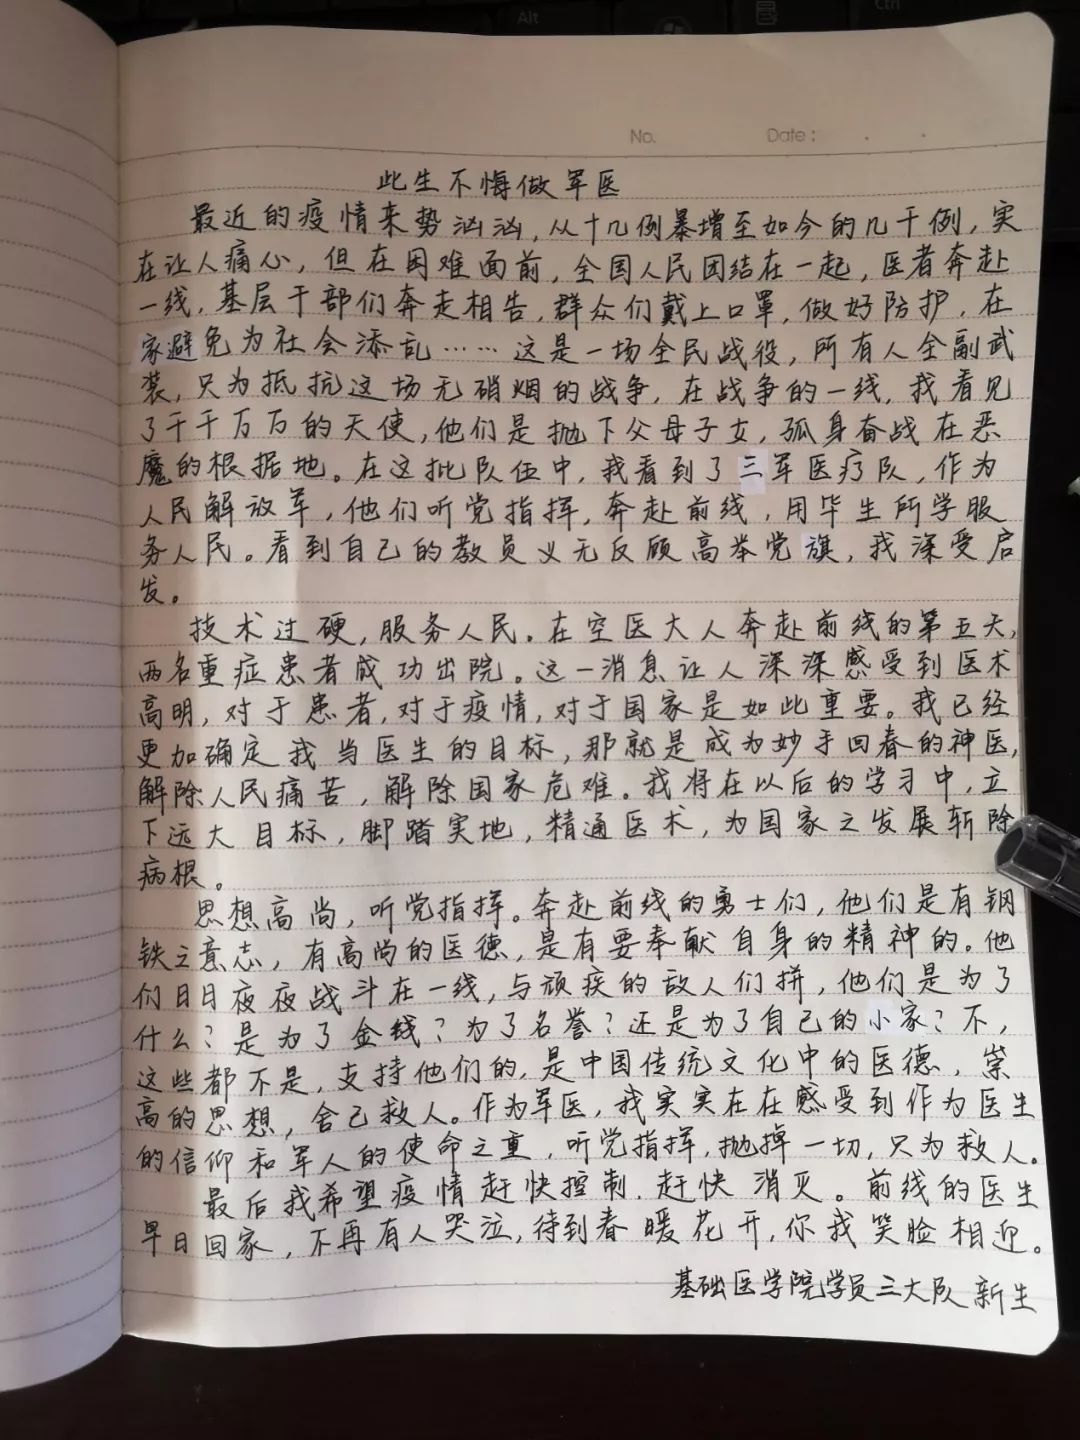 Alt
Ctrl
No.
Date: . .
此生不悔做军医
最近的疫情来势汹汹,从十几例暴增至如今的几千例,实
在让人痛心,但在困难面前,全国人民团结在一起,医者奔赴
一线,基层干部们奔走相告,群众们戴上口罩,做好防护,在
家避免为社会添乱……这是一场全民战役,所有人全副武
装,只为抵抗这场无硝烟的战争,在战争的一线,我看见
了千千万万的天使,他们是抛下父母子女,孤身奋战在恶
魔的根据地。在这批队伍中,我看到了三军医疗队,作为
人民解放军,他们听党指挥,奔赴前线,用毕生所学服
务人民。看到自己的教员义无反顾高举党旗,我深受启
发。
技术过硬,服务人民。在空医大人奔赴前线的第五天,
两名重症患者成功出院。这一消息让人深深感受到医术
高明,对于患者,对于疫情,对于国家是如此重要。我已经
更加确定我当医生的目标,那就是成为妙手回春的神医,
解除人民痛苦,解除国家危难。我将在以后的学习中,立
下远大目标,脚踏实地,精通医术,为国家之发展斩除
病根。
思想高尚,听党指挥。奔赴前线的勇士们,他们是有钢
铁之意志,有高尚的医德,是有要奉献自身的精神的。他
们日日夜夜战斗在一线,与顽疾的敌人们拼,他们是为了
什么?是为了金钱?为了名誉?还是为了自己的小家?不,
这些都不是,支持他们的,是中国传统文化中的医德,崇
高的思想,舍己救人。作为军医,我实实在在感受到作为医生
的信仰和军人的使命之重,听党指挥,抛掉一切,只为救人。
最后我希望疫情赶快控制,赶快消灭。前线的医生
早日回家,不再有人哭泣,待到春暖花开,你我笑脸相迎。
基础医学院学员三大队新生